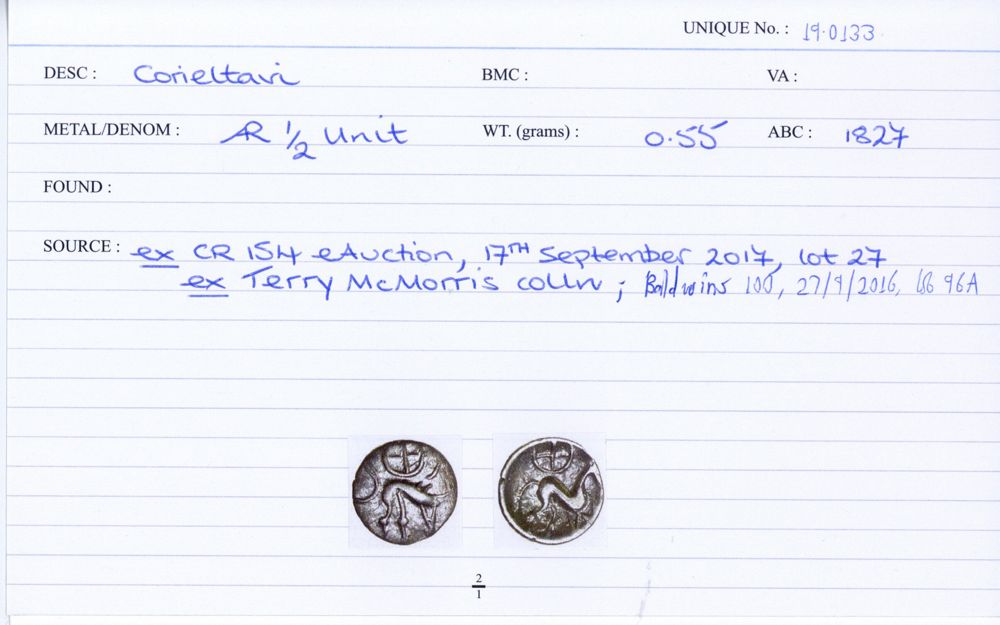 UNIQUE No. : 19.0133
DESC : Corieltavi BMC : VA :
METAL/DENOM : AR 1/2 Unit WT. (grams) : 0.55 ABC : 1827
FOUND :
SOURCE : ex CR ISH eAuction, 17TH September 2017, lot 27
ex Terry McMorris colln ; Baldwins 100, 27/9/2016, 96A
2
1